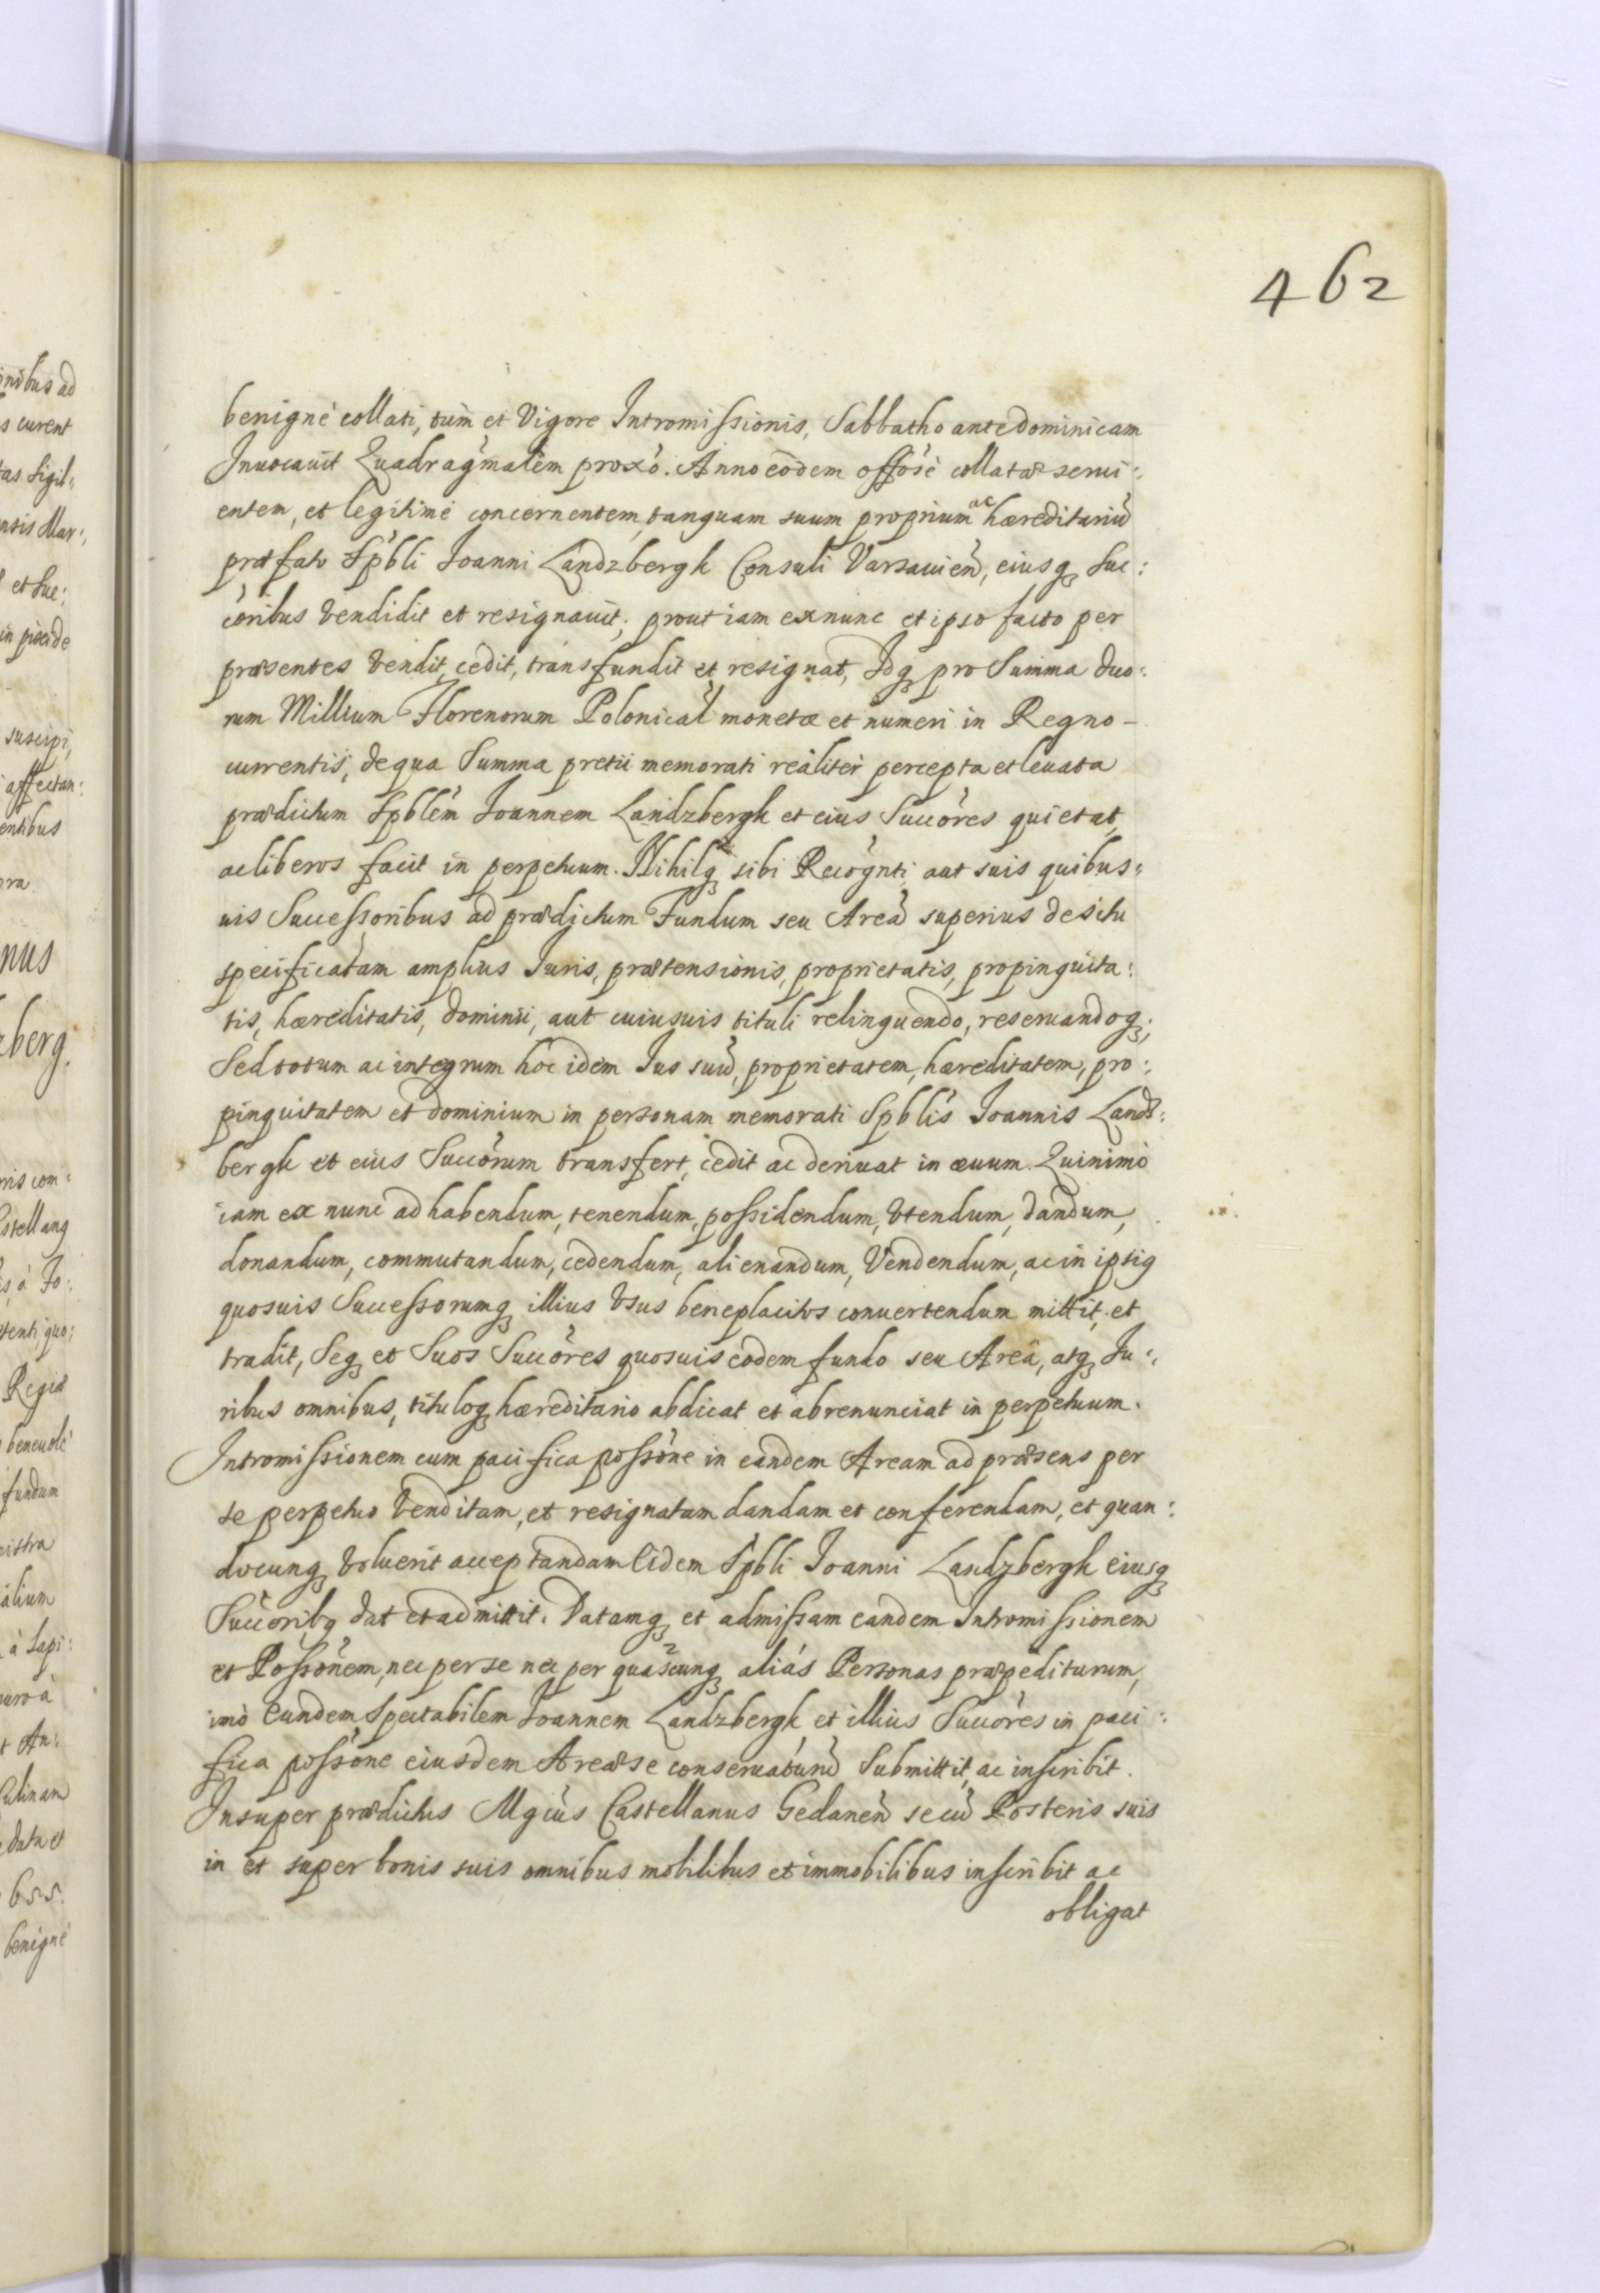 462
benignè collati, tum et Vigore Intromissionis, Sabbatho ante dominicam
Inuocauit Quadragmalem proxo. Anno eodem offosè collatæ serui:
entem, et legitimè concernentem, tanquam suum proprium ac hæreditariũ
præfato Spbli Joanni Landzbergk Consuli Varsauien, eiusq; Suc:
coribus vendidit et resignauit; prout iam exnunc et ipso facto per
præsentes vendit, cedit, transfundit et resignat, Idq; pro Summa duo:
rum Millium Florenorum Polonical monetæ et numeri in Regno -
currentis, de qua Summa pretii memorati realiter percepta et leuata
prædictum Spblem Joannem Landzbergk et eius Succores quietat,
ac liberos facit in perpetuum. Nihilq; sibi Recognti, aut suis quibus:
uis Successoribus ad prædictum Fundum seu Areã superius de situ
specificatam amplius Juris, prætensionis, proprietatis, propinquita:
tis, hæreditatis, dominii, aut cuiusuis tituli relinquendo, reseruandoq;
Sed totum ac integrum hoc idem Jus suũ, proprietatem, hæreditatem, pro:
pinquitatem et dominium in personam memorati Spblis Joannis Landz:
bergk et eius Succorum transfert, cedit ac deriuat in æuum. Quinimò
iam ex nunc ad habendum, tenendum, possidendum, vtendum, dandum,
donandum, commutandum, cedendum, alienandum, Vendendum, ac in ipsiq
quosuis Successorumq; illius vsus beneplacitos conuertendum mittit, et
tradit, Seq; et Suos Succores quosuis eodem fundo seu Areâ, atq; Ju:
ribus omnibus, tituloq; hæreditario abdicat et abrenunciat in perpetuum.
Intromissionem cum pacifica possone in eandem Aream ad præsens per
se perpetuo venditam, et resignatam dandam et conferendam, et quan:
docunq; voluerit acceptandam Eidem Spbli Joanni Landzbergk eiusq;
Succoribq dat et admittit. Datamq; et admissam eandem Intromissionem
et Possonem, nec per se nec per quascunq; aliàs Personas præpediturum,
imò Eundem Spectabilem Joannem Landzbergk et illius Succores in paci:
fica possone eiusdem Areæ se conseruaturũ Submittit, ac inscribit.
Insuper prædictus Mgcus Castellanus Gedanen secũ Posteris suis
in et super bonis suis omnibus mobilibus et immobilibus inscribit ac
obligat